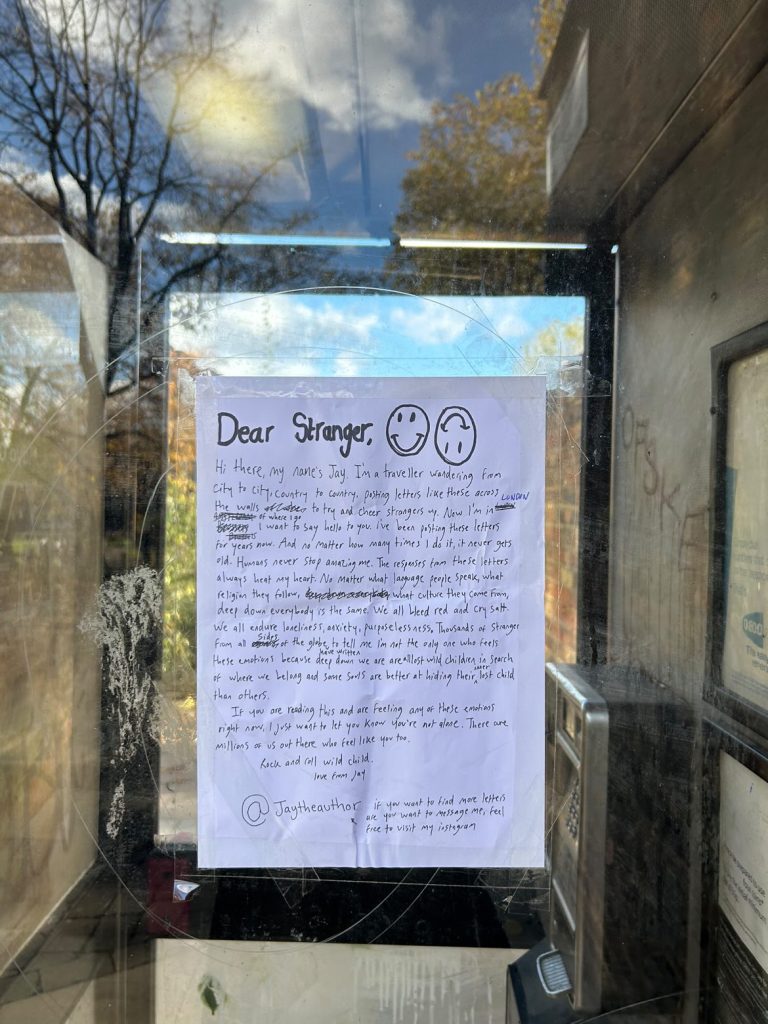 Dear Stranger,
Hi there, my name's Jay. I'm a traveller wandering from
city to city, country to country, posting letters like these across
the walls of where I go to try and cheer strangers up. Now I'm in LONDON
I want to say hello to you. I've been posting these letters
for years now. And no matter how many times I do it, it never gets
old. Humans never stop amazing me. The responses from these letters
always heat my heart. No matter what language people speak, what
religion they follow, what culture they come from,
deep down everybody is the same. We all bleed red and cry salt.
We all endure loneliness, anxiety, purposelessness. Thousands of stranger
from all sides of the globe have written to tell me I'm not the only one who feels
these emotions because deep down we are all lost wild children in search
of where we belong and some souls are better at hiding their inner lost child
than others.
If you are reading this and are feeling any of these emotions
right now, I just want to let you know you're not alone. There are
millions of us out there who feel like you too.
Rock and roll wild child.
love from Jay
@Jaytheauthor if you want to find more letters
are you want to message me, feel
free to visit my instagram